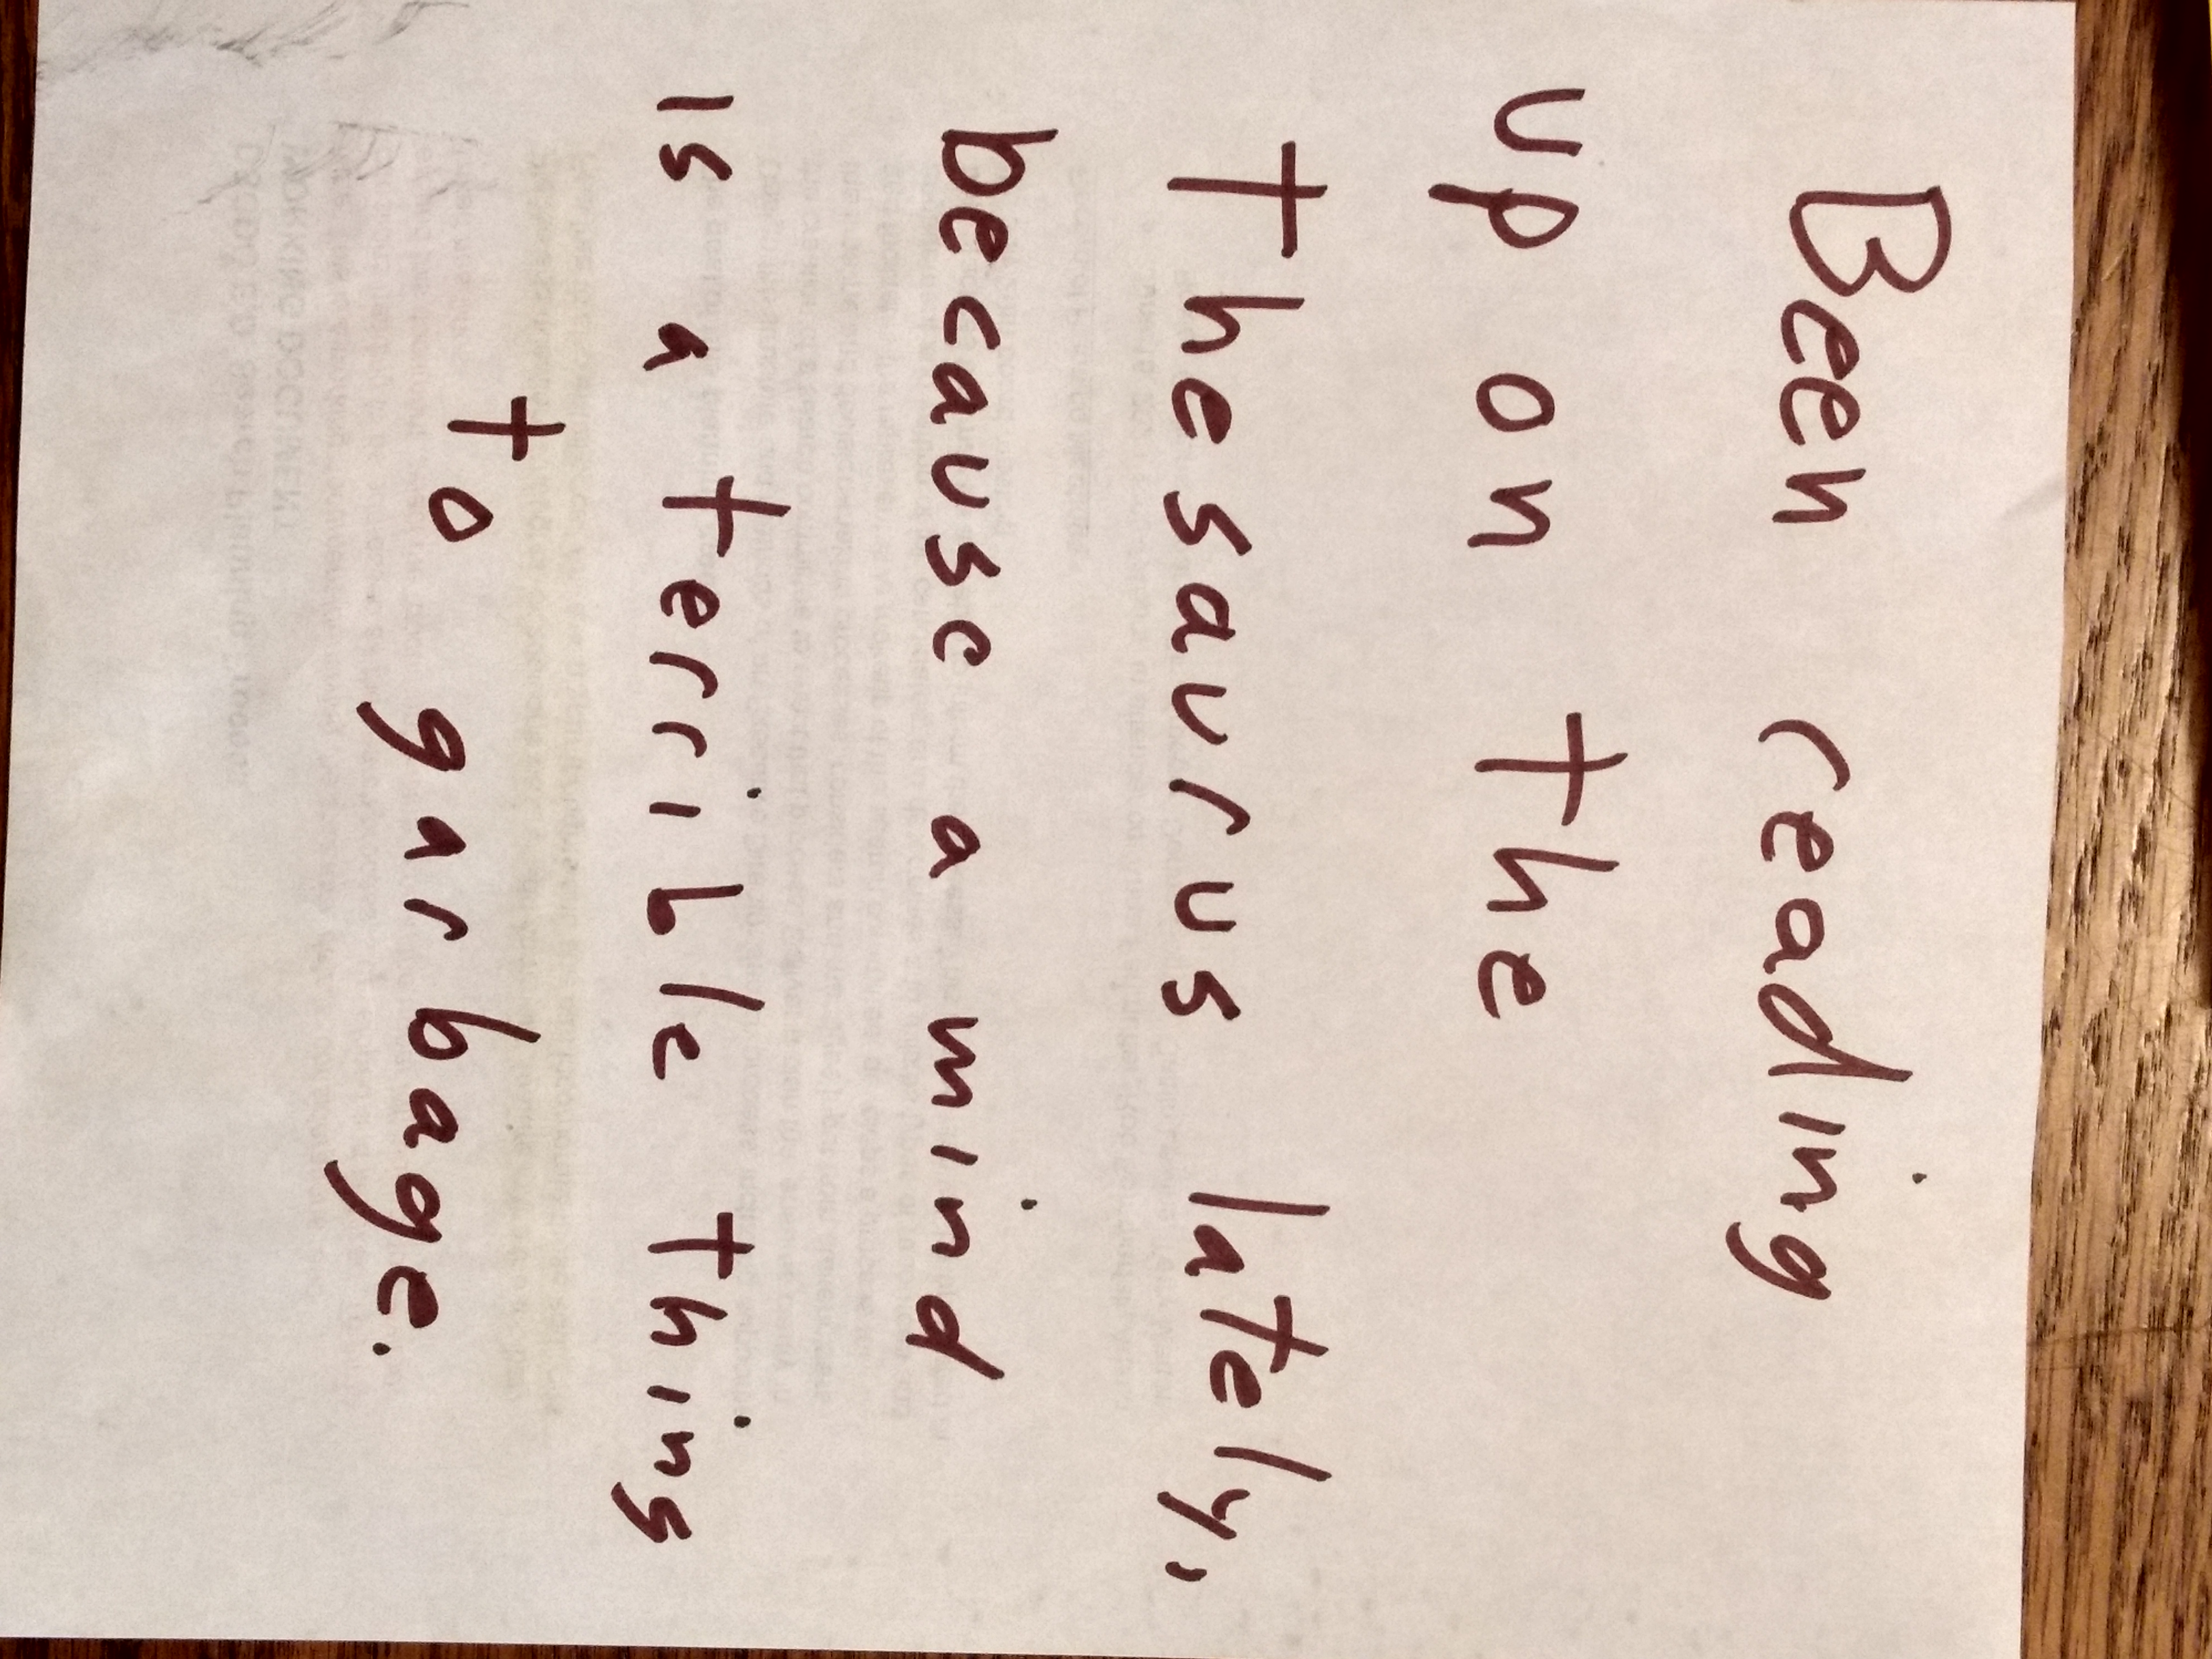 Been reading
up on the
thesaurus lately,
because a mind
is a terrible thing
to garbage.